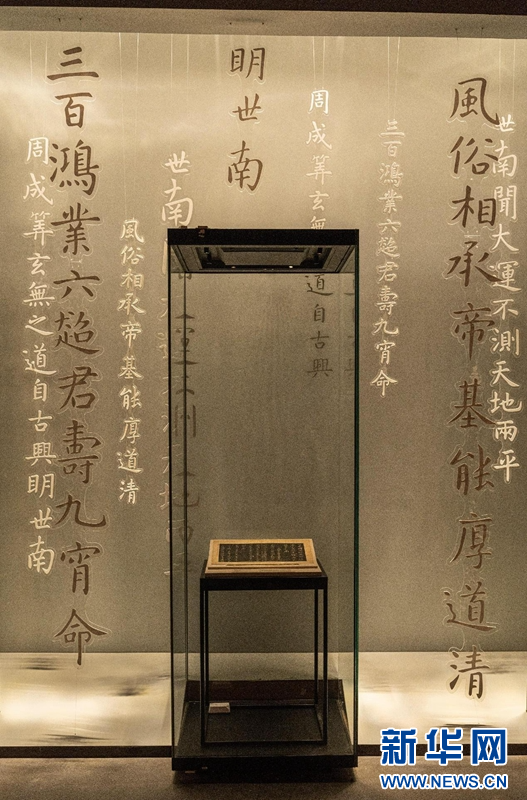 世南聞大運不測天地兩平
風俗相承帝基能厚道清
三百鴻業六超君壽九宵命
周成筭玄無道自古興
明世南
世南
風俗相承帝基能厚道清
三百鴻業六超君壽九宵命
周成筭玄無之道自古興明世南
新华网
WWW.NEWS.CN